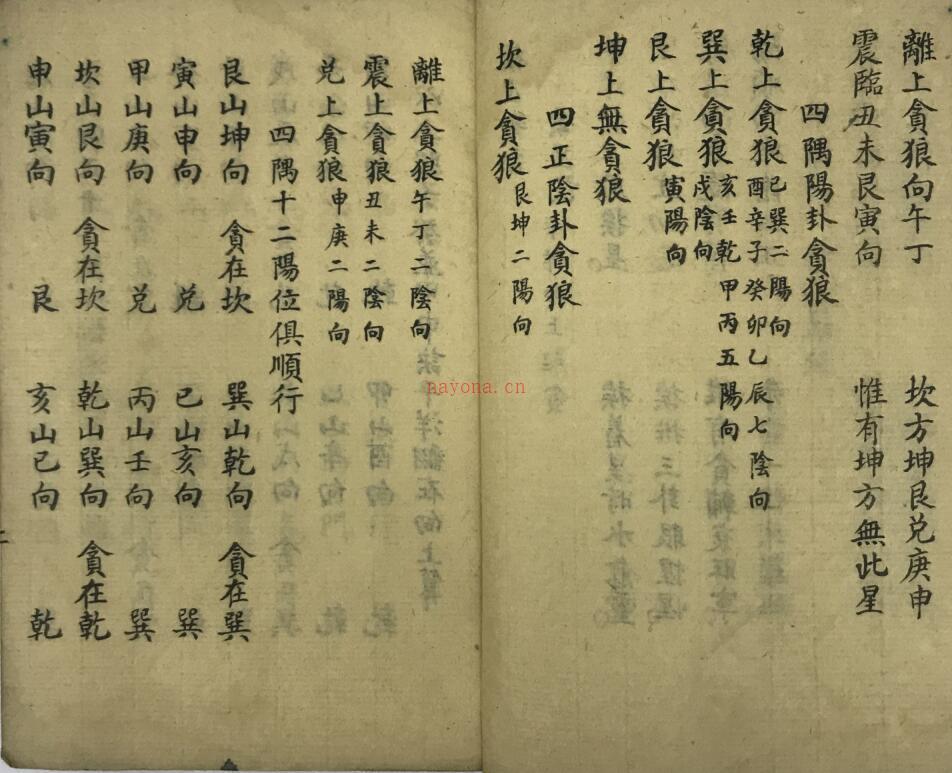 離上貪狼向午丁　坎方坤艮兑庚申
震臨丑未艮寅向　惟有坤方無此星
四隅陽卦貪狼
乾上貪狼巳巽二陽向
酉辛子癸卯乙辰七陰向
巽上貪狼亥壬乾甲丙五陽向
戌陰向
艮上貪狼寅陽向
坤上無貪狼
四正陰卦貪狼
坎上貪狼艮坤二陽向
離上貪狼午丁二陰向
震上貪狼丑未二陰向
兑上貪狼申庚二陽向
四隅十二陽位俱順行
艮山坤向　貪在坎　巽山乾向　貪在巽
寅山申向　兑　巳山亥向　巽
甲山庚向　兑　丙山壬向　巽
坎山艮向　貪在坎　乾山巽向　貪在乾
申山寅向　艮　亥山巳向　乾
nayona.cn